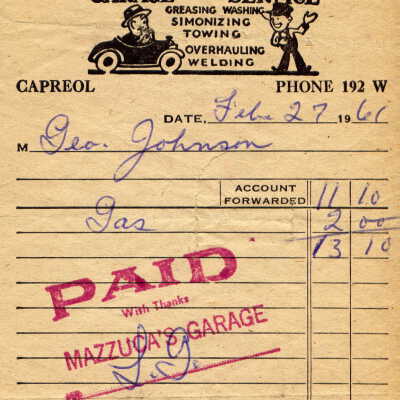 GARAGE SERVICE
GREASING WASHING
SIMONIZING
TOWING
OVERHAULING
WELDING
CAPREOL PHONE 192 W
DATE, Feb. 27 1961
M Geo. Johnson
ACCOUNT FORWARDED 11 10
Gas 2 00
13 10
PAID
With Thanks
MAZZUCA'S GARAGE
L.G.